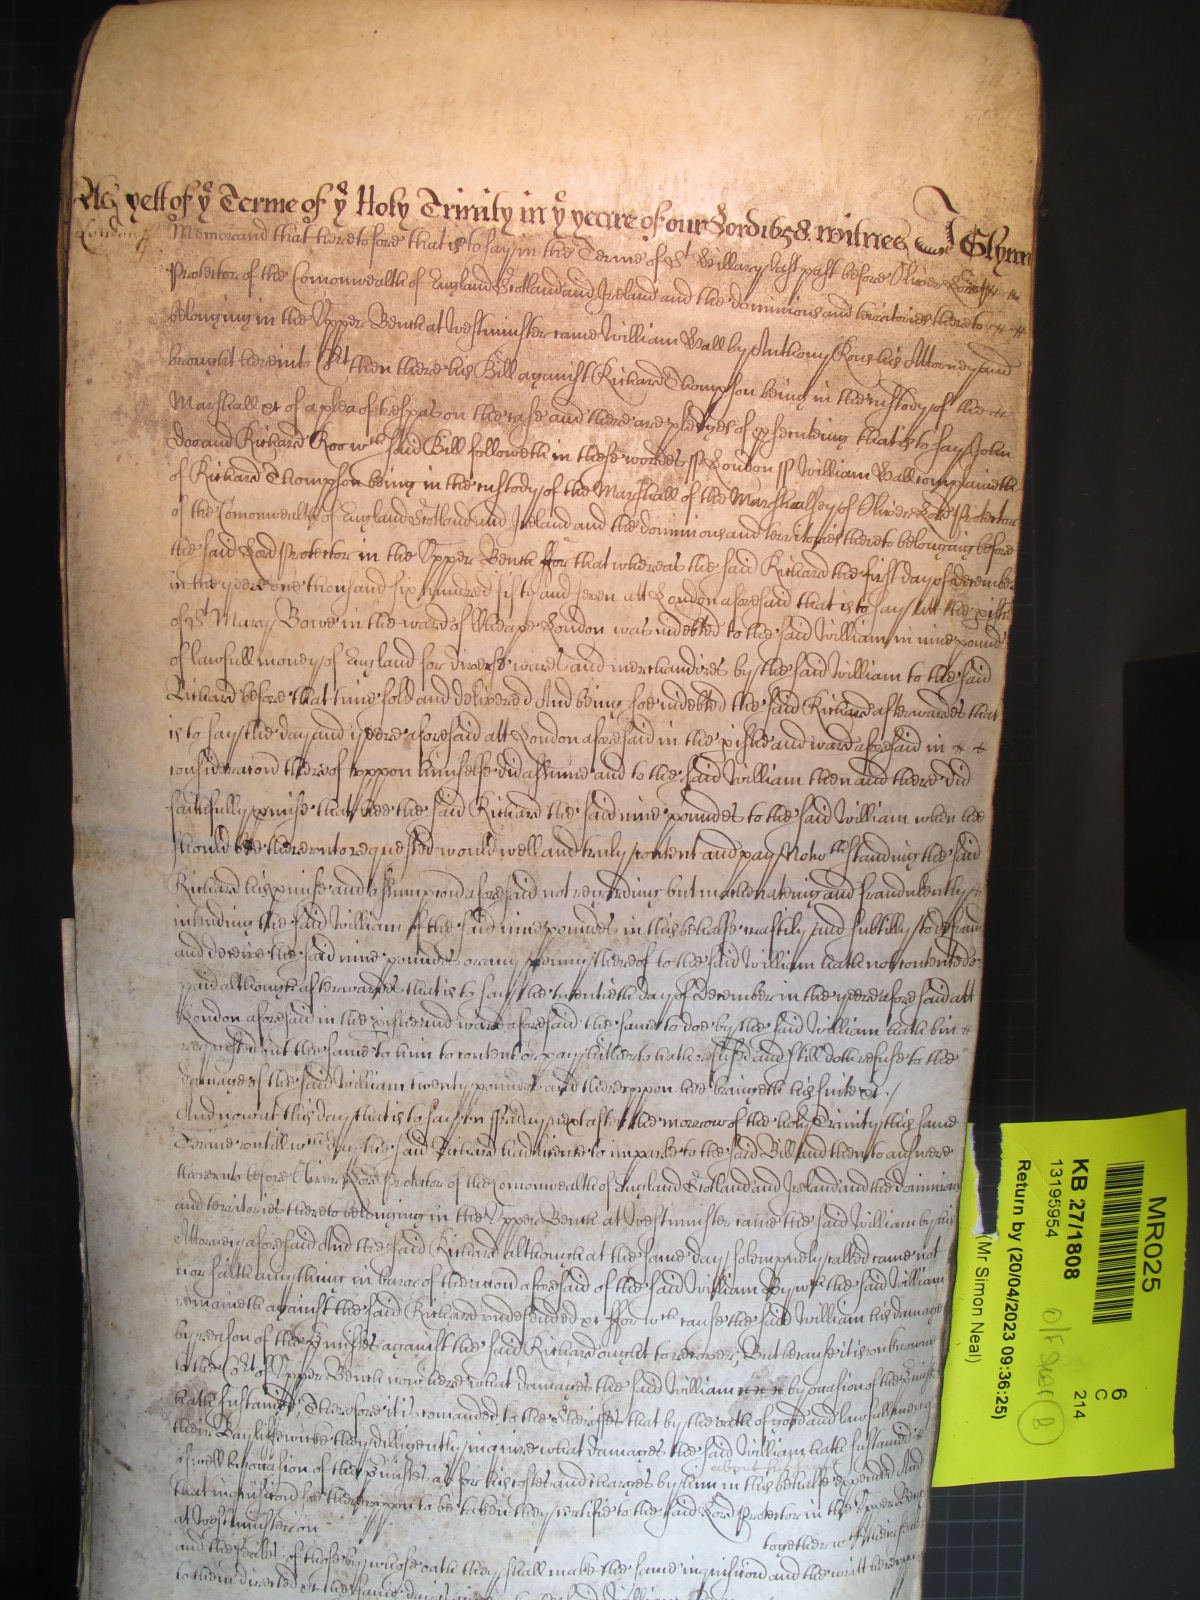 As yett of ye Terme of ye Holy Trinity in ye yeare of our Lord 1658. witnes J Glynn
London ss
Memorand that heretofore that is to say in the Terme of St Hillary last past before Oliver Lord
Protector of the Comonwealth of England Scotland and Ireland and the dominions and territories thereto
belonging in the Upper Bench at Westminster came William Ball by Anthony Rous his Attorney and
brought here into Crt then there his Bill against Richard Thompson being in the custody of the
Marshall &c of a plea of trespas on the case and there are pledges of psecuting that is to say John
Doo and Richard Roo wch said Bill followeth in these wordes ss London ss William Ball complaineth
of Richard Thompson being in the custody of the Marshall of the Marshalsey of Oliver Lord Protector
of the Comonwealth of England Scotland and Ireland and the dominions and territories thereto belonging before
the said Lord Protector in the Upper Bench ffor that whereas the said Richard the first day of December
in the yeere one thousand six hundred fifty and seven att London aforesaid that is to say att the pish
of St Mary Bowe in the ward of Cheape London was indebted to the said William in nine pounds
of lawfull money of England for diverse wares and merchandizes by the said William to the said
Richard before that time sold and delivered And being soe indebted the said Richard afterwardes that
is to say the day and yeere aforesaid att London aforesaid in the pishe and ward aforesaid in
consideracon thereof uppon himselfe did assume and to the said William then and there did
faithfully pmise that hee the said Richard the said nine poundes to the said William when hee
should bee thereunto requested would well and truly content and pay Notwthstanding the said
Richard his pmise and assumpcon aforesaid not regarding but machinateing and fraudulently
intending the said William of the said nine poundes in this behalfe craftily and subtilly to defraud
and deceive the said nine poundes or any penny thereof to the said William hath not contented or
paid although afterwardes that is to say the twentieth day of December in the yeere aforesaid att
London aforesaid in the pishe and ward aforesaid the same to doe by the said William hath bin
requested but the same to him to content or pay hitherto hath refused and still doth refuse to the
damage of the said William twenty poundes and thereuppon hee bringeth his suite &c./
And now at this day that is to say on ffriday next after the morrow of the holy Trinity this same
Terme untill wch day the said Richard had licence to imparle to the said Bill and then to answere
thereunto before Oliver Lord Protector of the Comonwealth of England Scotland and Ireland and the dominions
and territories thereto belonging in the Upper Bench at Westminster came the said William by his
Attorney aforesaid And the said Richard although at the same day solempnely called came not
nor saith any thing in barre of the accon aforesaid of the said William By wch the said William
remaineth against the said Richard undefended &c ffor wch cause the said William his damages
by reason of the pmisses against the said Richard ought to recover, But because it is unknowne
to the Crt of Upper Bench now here what damages the said William by occasion of the pmisses
hath sustained Therefore it is comanded to the Sheriffes that by the oath of good and lawfull men of
their Baylifewicke they dilligently inquire what damages the said William hath sustained
as well by occasion of the pmisses as for his costes and charges by him in this behalfe expended And
about his suite
that inquisicon soe thereuppon to be taken they certifie to the said Lord Protector in the Upper Bench
at Westminster on together wth their seales
and the seales of those by whose oath they shall make the same inquisicon and the writt thereuppon
to them directed &c the same day is
MR025
6
C
214
KB 27/1808
13195954
O/F Sheet
B
Return by (20/04/2023 09:36:25)
(Mr Simon Neal)